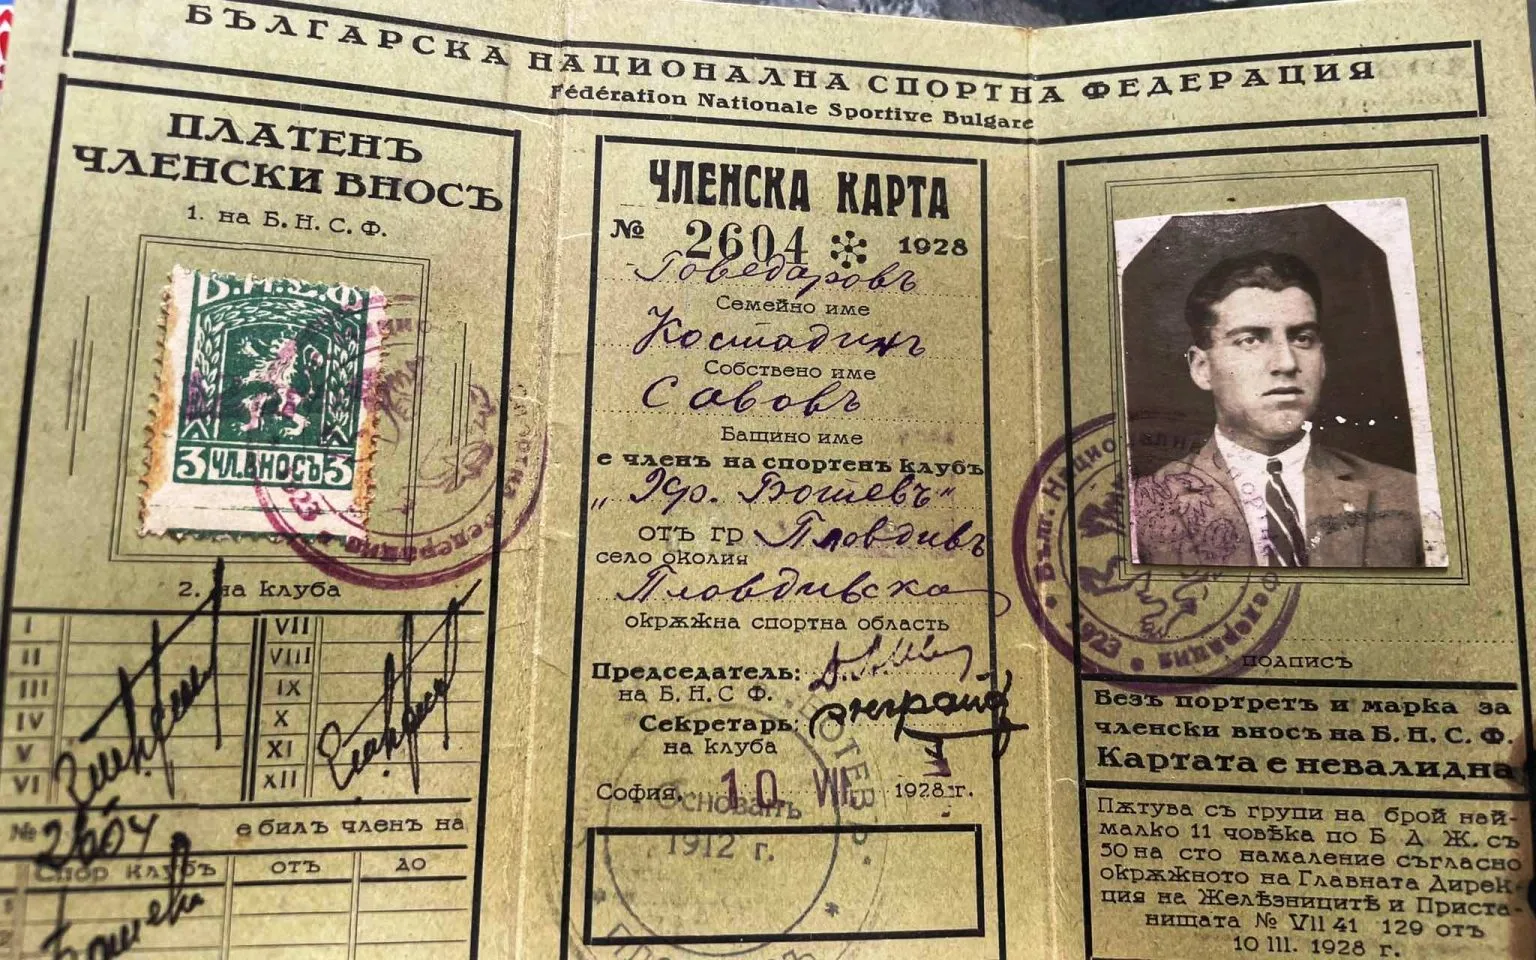 БЪЛГАРСКА НАЦИОНАЛНА СПОРТНА ФЕДЕРАЦИЯ
Fédération Nationale Sportive Bulgare
ПЛАТЕНЪ
ЧЛЕНСКИ ВНОСЪ
1. на Б. Н. С. Ф.
Б.Н.С.Ф
3 ЧЛ.ВНОСЪ 3
2. на клуба
I VII
II VIII
III IX
IV X
V XI
VI XII
№ 2604 е билъ членъ на
Спор клубъ отъ до
1
2
ЧЛЕНСКА КАРТА
№ 2604 1928
Говедаровъ
Семейно име
Костадинъ
Собствено име
Савовъ
Бащино име
е членъ на спортенъ клубъ
„Хр. Ботевъ“
отъ гр Пловдивъ
село околия
Пловдивска
окрѫжна спортна область
Председатель:
на Б. Н. С Ф.
Секретарь:
на клуба
София, 10 VII 1928 г.
БОТЕВЪ
Основанъ
1912 г.
Бълг. Национална Спортна Федерация 1923
подпись
Безъ портретъ и марка за
членски вносъ на Б. Н. С. Ф.
Картата е невалидна
Пѫтува съ групи на брой най-
малко 11 човѣка по Б Д Ж. съ
50 на сто намаление съгласно
окрѫжното на Главната Дирек-
ция на Желѣзницитѣ и Приста-
нищата № VII 41 129 отъ
10 III. 1928 г.